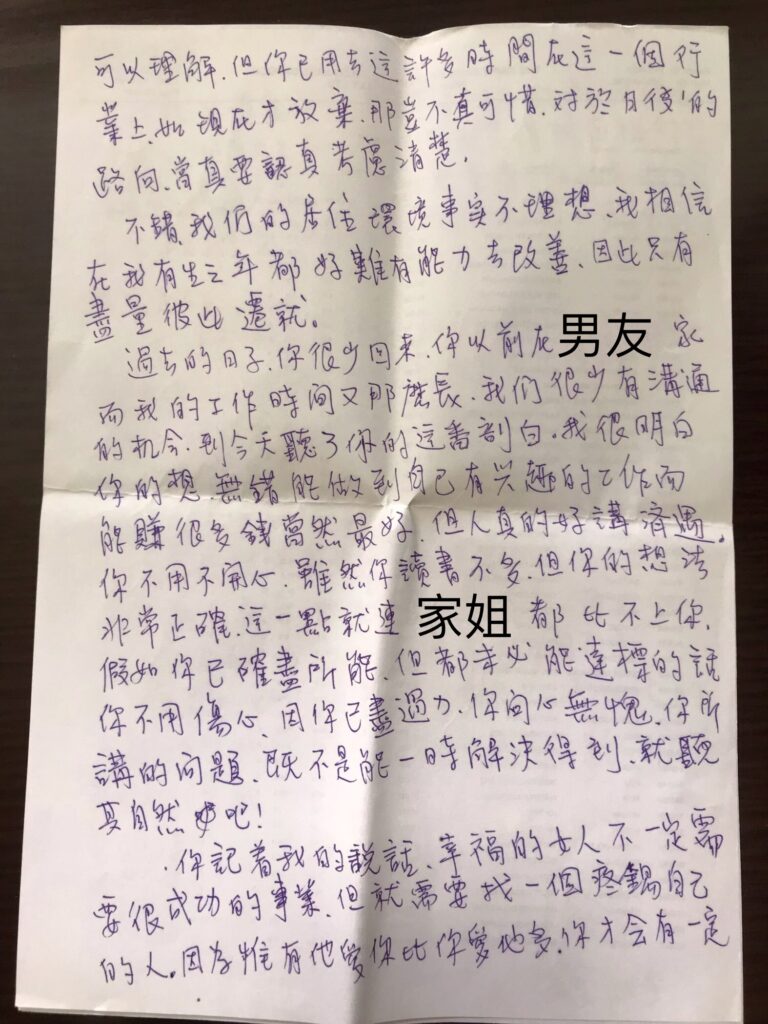 可以理解.但你已用去這許多時間在這一個行
業上.如現在才放棄.那豈不真可惜.对於日後的
路向.當真要認真考慮清楚.
不錯.我们的居住環境事实不理想、我相信
在我有生之年都好難有能力去改善、因此只有
盡量彼此遷就。
過去的日子.你很少回来.你以前在男友家
而我的工作時间又那麽長.我们很少有溝通
的机会.到今天聽了你的這番剖白.我很明白
你的想.無錯能做到自己有兴趣的工作而
能賺很多錢當然最好.但人真的好講際遇.
你不用不開心.雖然你讀書不多.但你的想法
非常正確.這一點就連家姐都比不上你.
假如你已確盡所能.但都未必能達標的話
你不用傷心、因你已盡過力.你问心無愧.你所
講的问題.既不是能一時解決得到.就聽
其自然吧!
你記着我的說話、幸福的女人不一定需
要很成功的事業.但就需要找一個疼錫自己
的人.因為惟有他愛你比你愛他多.你才会有一定